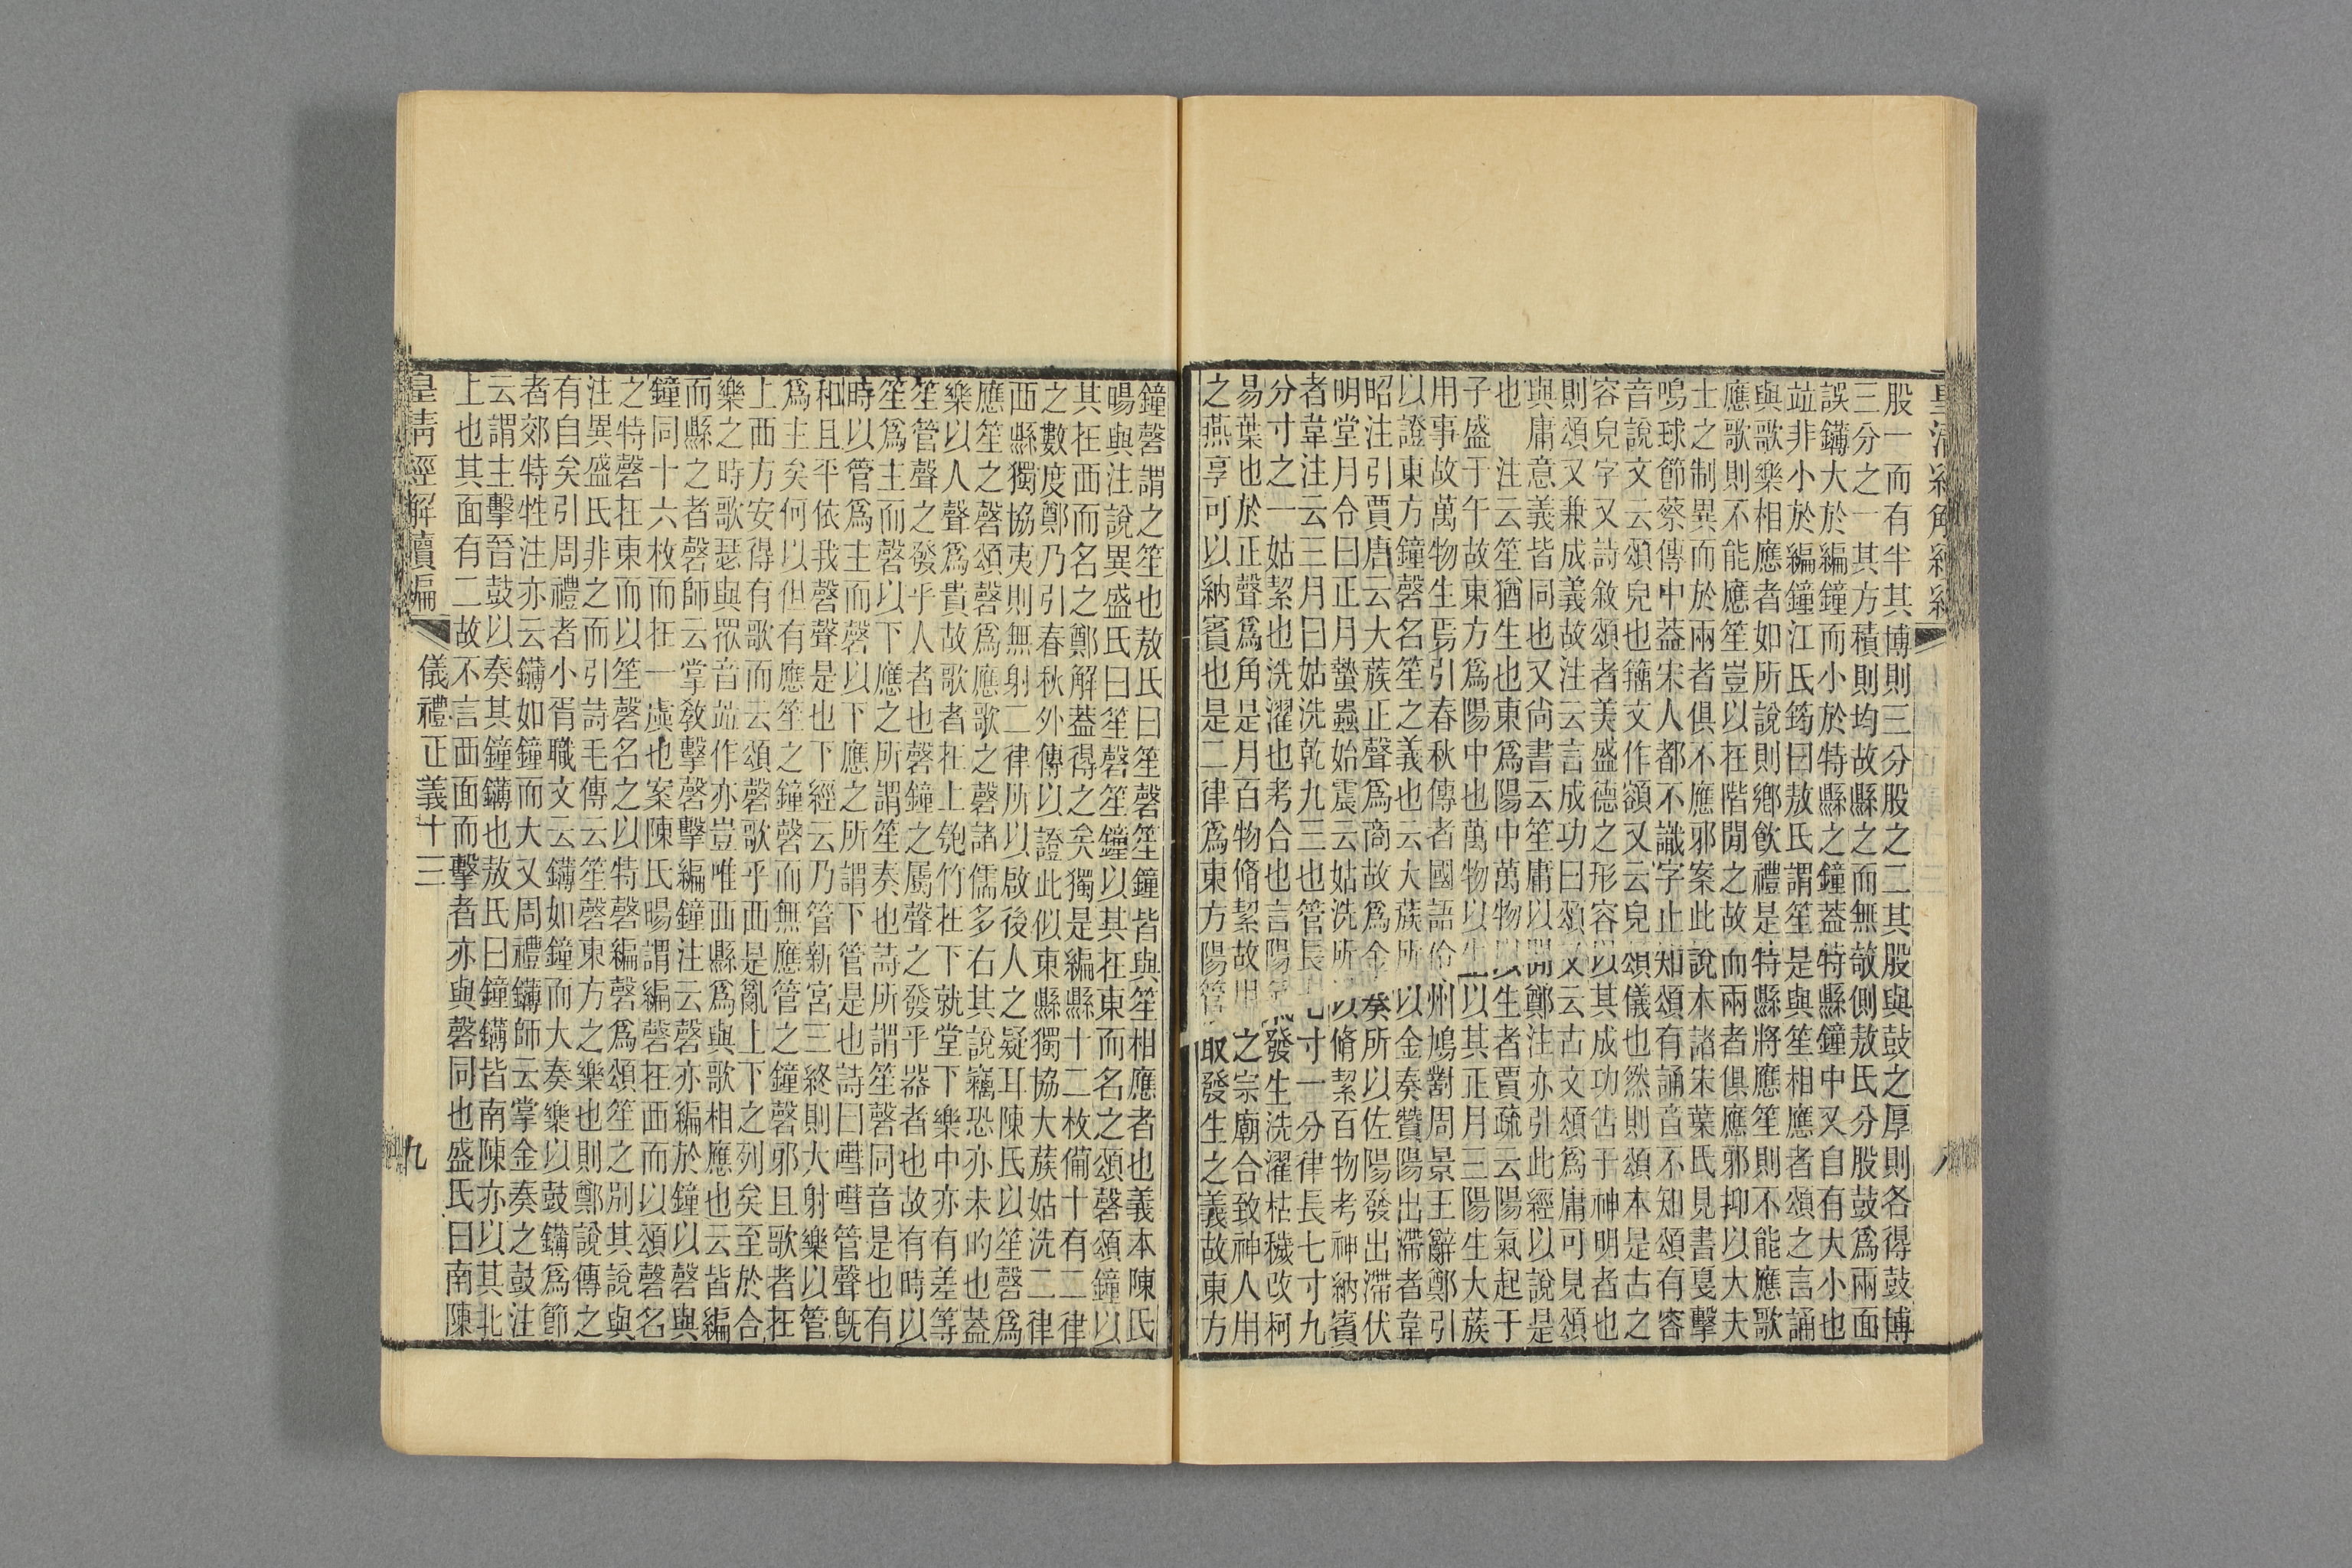 股一而有半其博則三分股之二其股與鼓之厚則各得鼓博
三分之一其方積則均故縣之而無敧側敖氏分股鼓爲兩面
誤鑮大於編鐘而小於特縣之鐘蓋特縣鐘中又自有大小也
竝非小於編鐘江氏筠曰敖氏謂笙是與笙相應者頌之言誦
與歌樂相應者如所說則鄉飮禮是特縣將應笙則不能應歌
應歌則不能應笙豈以在階閒之故而兩者俱應邪抑以大夫
士之制異而於兩者俱不應邪案此說本諸宋葉氏見書戛擊
鳴球節蔡傳中蓋宋人都不識字止知頌有誦音不知頌有容
音說文云頌皃也籒文作額又云皃頌儀也然則頌本是古之
容皃字又詩敘頌者美盛德之形容以其成功告于神明者也
則頌又兼成義故注云言成功曰頌又云古文頌爲庸可見頌
與庸意義皆同也又尙書云笙庸以閒鄭注亦引此經以說是
也　注云笙猶生也東爲陽中萬物以生者賈疏云陽氣起于
子盛于午故東方爲陽中也萬物以生以其正月三陽生大蔟
用事故萬物生焉引春秋傳者國語伶州鳩對周景王辭鄭引
以證東方鐘磬名笙之義也云大蔟所以金奏贊陽出滯者韋
昭注引賈唐云大蔟正聲爲商故爲金奏所以佐陽發出滯伏
明堂月令曰正月蟄蟲始震云姑洗所以脩絜百物考神納賓
者韋注云三月曰姑洗乾九三也管長七寸一分律長七寸九
分寸之一姑絜也洗濯也考合也言陽氣發生洗濯枯穢改柯
易葉也於正聲爲角是月百物脩絜故用之宗廟合致神人用
之燕享可以納賓也是二律爲東方陽管取發生之義故東方
鐘磬謂之笙也敖氏曰笙磬笙鐘皆與笙相應者也義本陳氏
暘與注說異盛氏曰笙磬笙鐘以其在東而名之頌磬頌鐘以
其在西而名之鄭解蓋得之矣獨是編縣十二枚備十有二律
之數度鄭乃引春秋外傳以證此似東縣獨協大蔟姑洗二律
西縣獨協夷則無射二律所以啟後人之疑耳陳氏以笙磬爲
應笙之磬頌磬爲應歌之磬諸儒多右其說竊恐亦未的也蓋
樂以人聲爲貴故歌者在上匏竹在下就堂下樂中亦有差等
笙管聲之發乎人者也磬鐘之屬聲之發乎器者也故有時以
笙爲主而磬以下應之所謂笙奏也詩所謂笙磬同音是也有
時以管爲主而磬以下應之所謂下管是也詩曰嘒嘒管聲旣
和且平依我磬聲是也下經云乃管新宮三終則大射樂以管
爲主矣何以但有應笙之鐘磬而無應管之鐘磬邪且歌者在
上西方安得有歌而去頌磬歌乎西是亂上下之列矣至於合
樂之時歌瑟與眾音竝作亦豈唯西縣爲與歌相應也云皆編
而縣之者磬師云掌敎擊磬擊編鐘注云磬亦編於鐘以磬與
鐘同十六枚而在一虡也案陳氏暘謂編磬在西而以頌磬名
之特磬在東而以笙磬名之以特磬編磬爲頌笙之別其說與
注異盛氏非之而引詩毛傳云笙磬東方之樂也則鄭說傳之
有自矣引周禮者小胥職文云鑮如鐘而大奏樂以鼓鑮爲節
者郊特牲注亦云鑮如鐘而大又周禮鑮師云掌金奏之鼓注
云謂主擊晉鼓以奏其鐘鑮也敖氏曰鐘鑮皆南陳亦以其北
上也其面有二故不言西面面而擊者亦與磬同也盛氏曰南陳
皇淸經解續編　儀禮正義十三　九